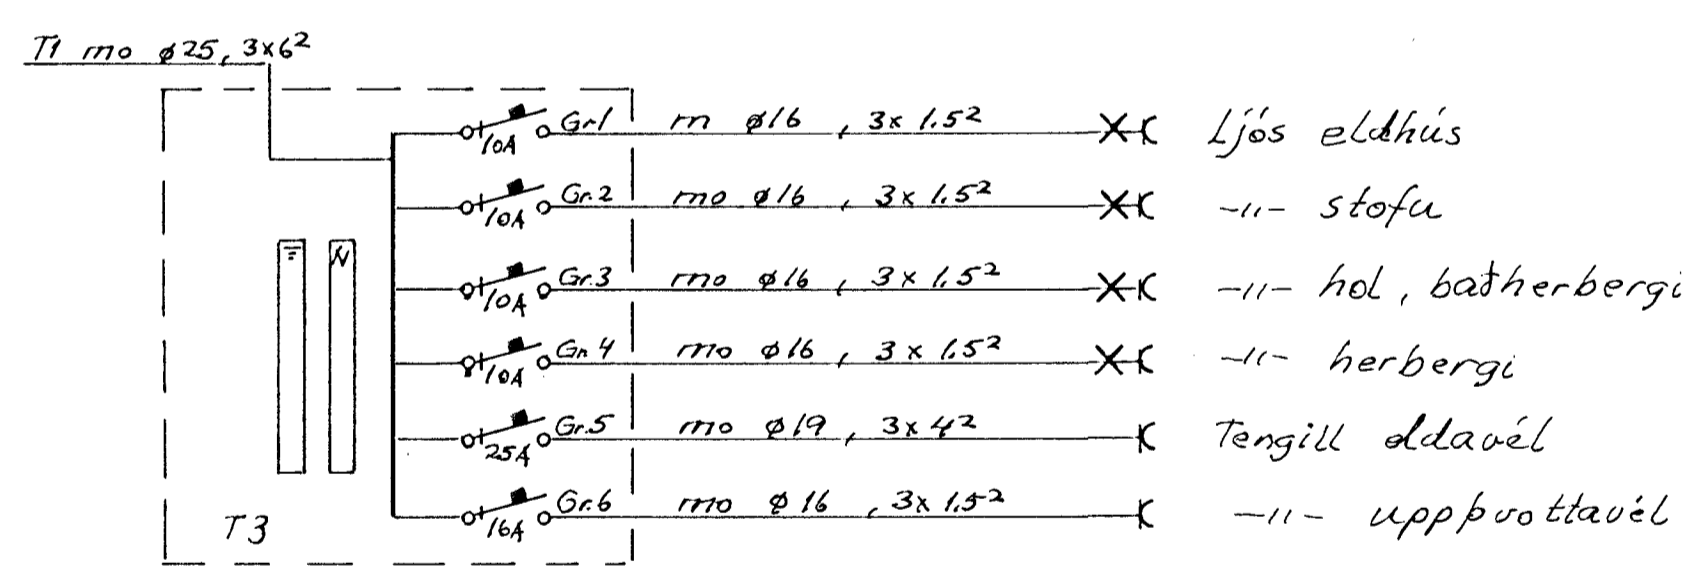 T1 mo ø25, 3x6²
Gr1 m ø16, 3x 1.5² Ljós eldhús
10A
Gr.2 mo ø16, 3x 1.5² -11- stofu
10A
Gr.3 mo ø16, 3x 1.5² -11- hol, baðherbergi
10A
N
Gr.4 mo ø16, 3x 1.5² -11- herbergi
10A
Gr.5 mo ø19, 3x4² Tengill eldavél
25A
Gr.6 mo ø16, 3x 1.5² -11- uppþvottavél
16A
T3